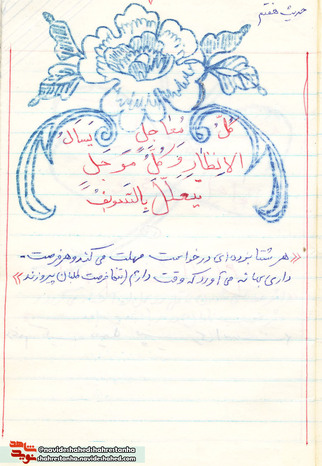 حدیث هفتم
کُلُّ مُعاجِلٍ یَسأَلُ
الإِنظارَ وَ کُلُّ مُؤَجَّلٍ
یَتَعَلَّلُ بِالتَّسویفِ
«هر شتابزده‌ای درخواست مهلت می‌کند و هر فرصت-
داری بهانه می‌آورد که وقت دارم (تنها فرصت طلبان پیروزند)»
شاهد
نوید
@navideshahedshahrestanha
shahrestanha.navideshahed.com